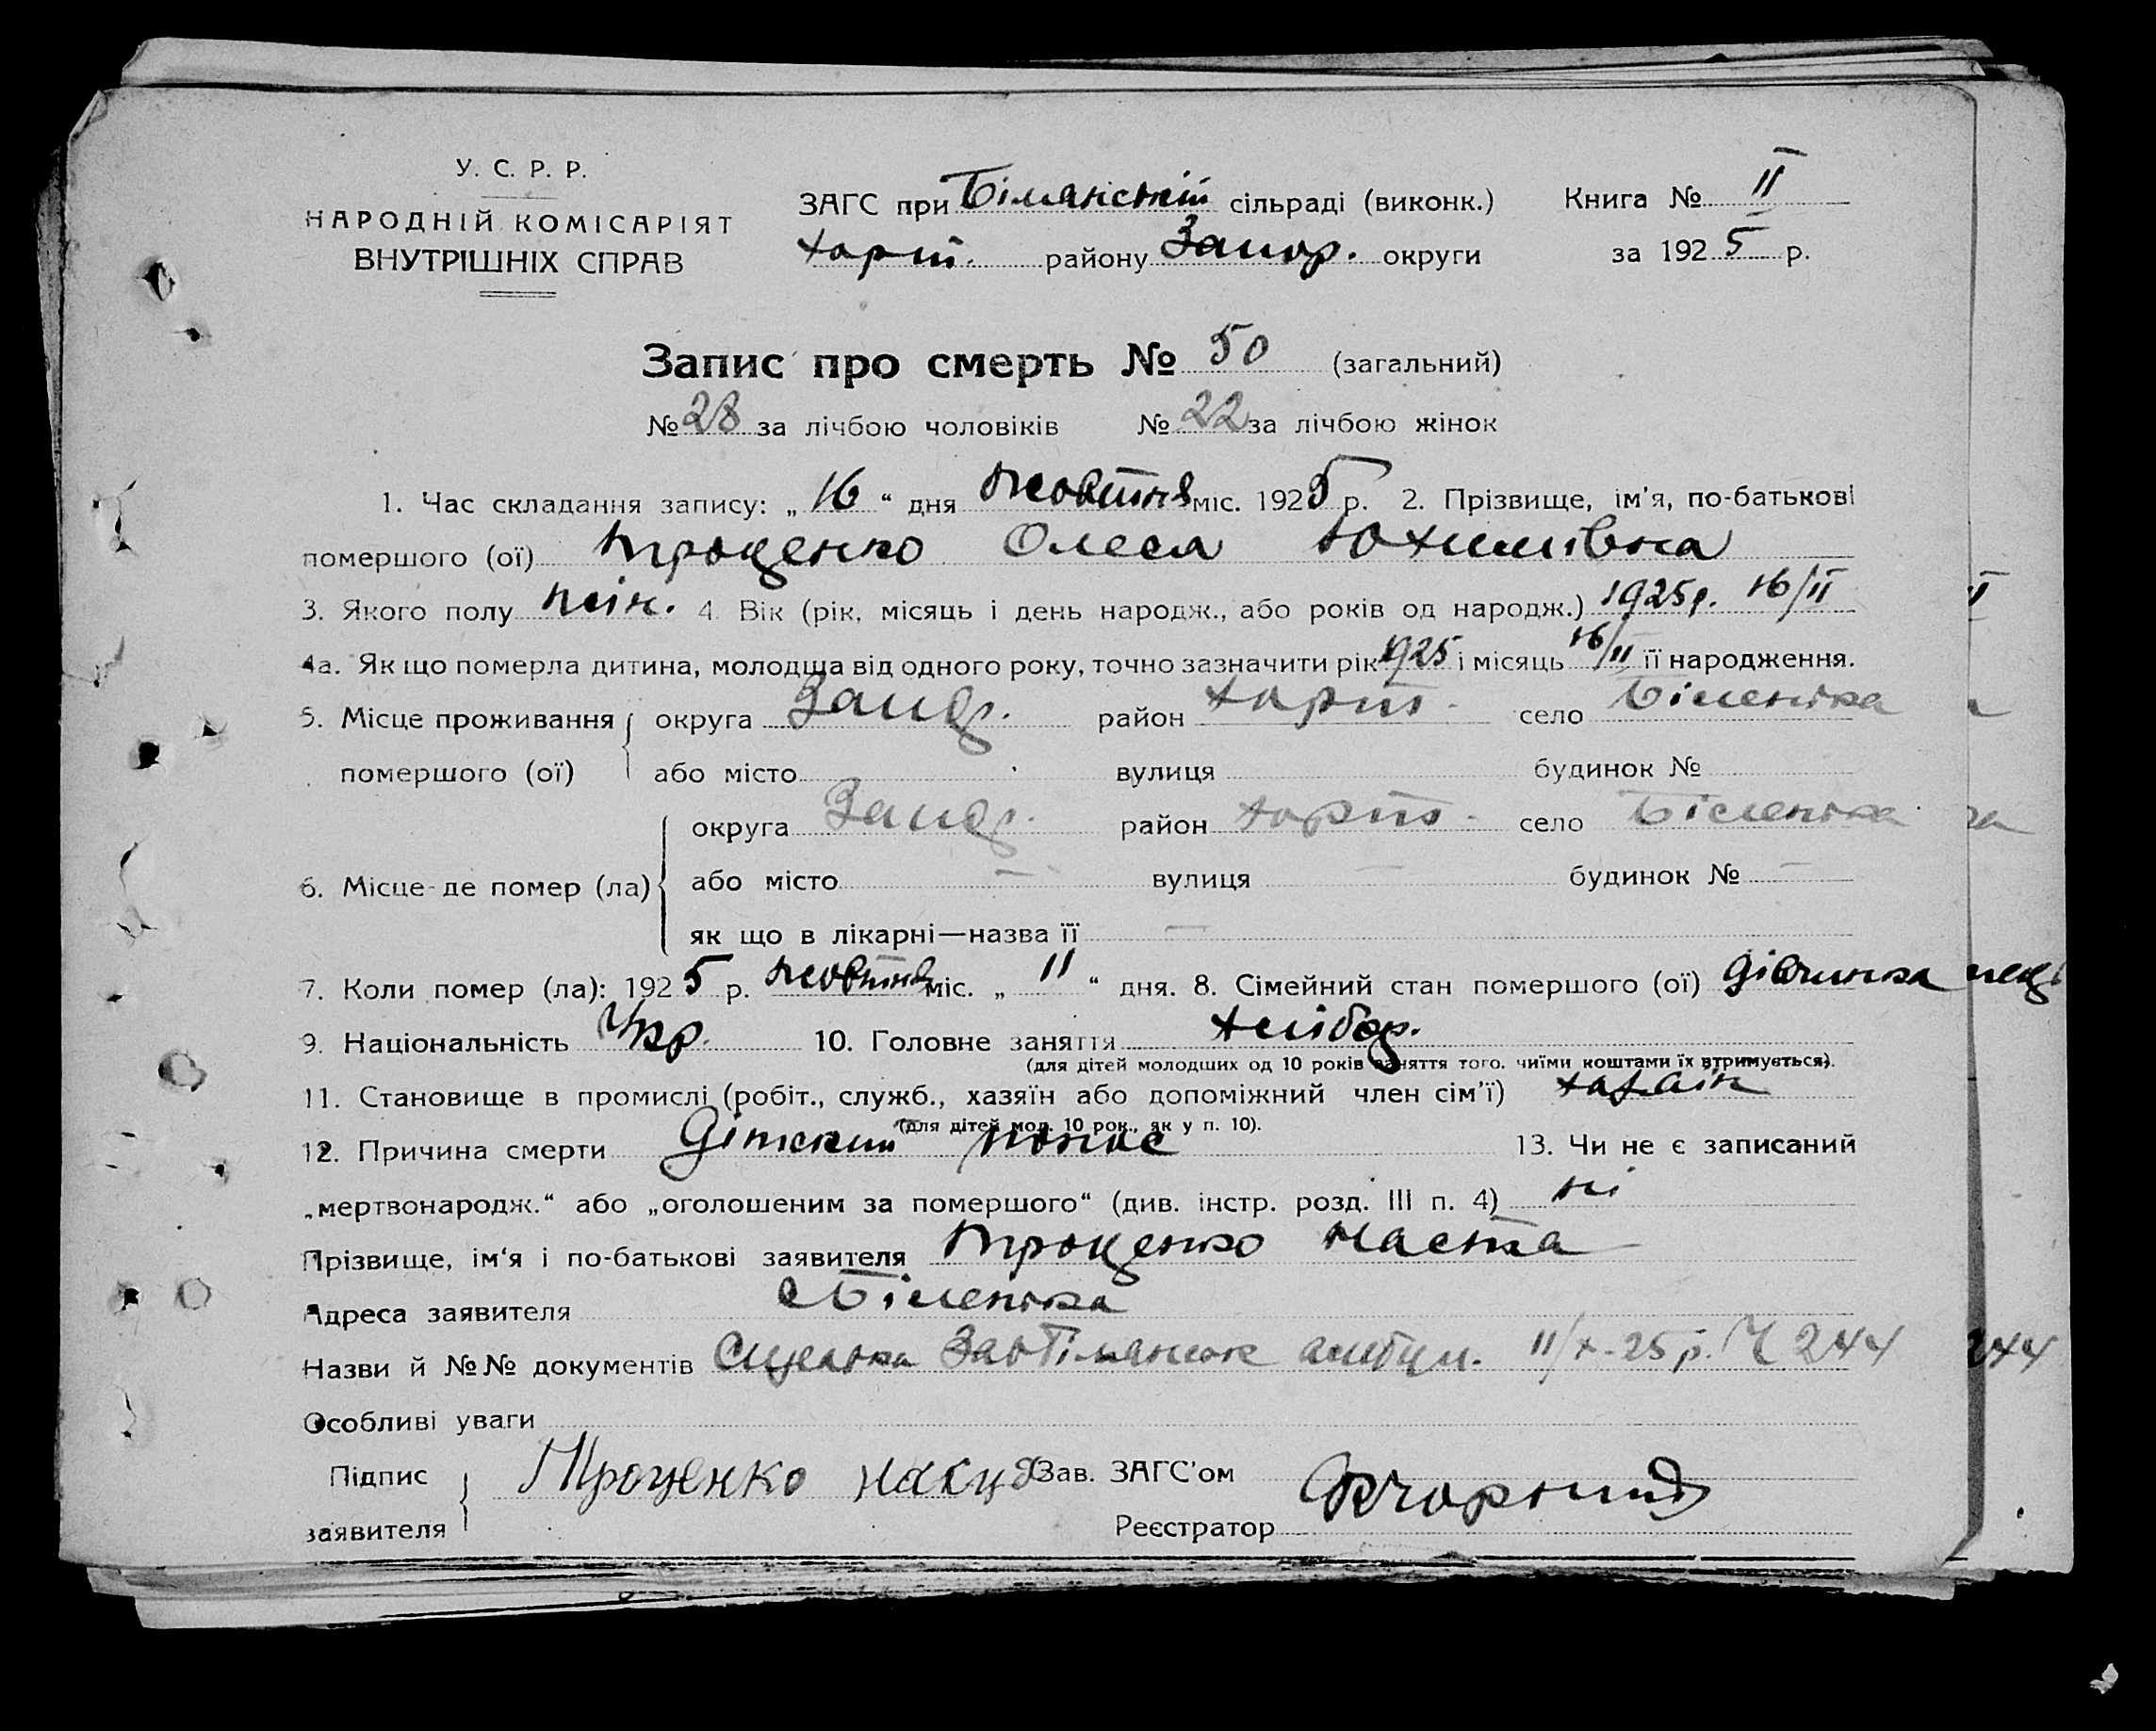 У. С. Р. Р.
НАРОДНІЙ КОМІСАРІЯТ
ВНУТРІШНІХ СПРАВ
ЗАГС при Біланській сільраді (виконк.) Книга № II
Хорт. району Запор. округи за 1925 р.
Запис про смерть № 50 (загальний)
№ 28 за лічбою чоловіків № 22 за лічбою жінок
1. Час складання запису: „16“ дня жовтня міс. 1925 р. 2. Прізвище, ім'я, по-батькові
помершого (ої) Троценко Олеса Юхимівна
3. Якого полу жін. 4. Вік (рік, місяць і день народж., або років од народж.) 1925 р. 16/II
4а. Як що померла дитина, молодща від одного року, точно зазначити рік 1925 і місяць 16/II її народження.
5. Місце проживання помершого (ої) округа Запор. район Хорт. село Біленька
або місто вулиця будинок №
6. Місце де помер (ла) округа Запор. район Хорт. село Біленька
або місто — вулиця — будинок № —
як що в лікарні—назва її —
7. Коли помер (ла): 1925 р. жовтня міс. „11“ дня. 8. Сімейний стан помершого (ої) дівчинка
9. Національність Укр. 10. Головне заняття хлібор.
(для дітей молодших од 10 років заняття того, чиїми коштами їх втримується).
11. Становище в промислі (робіт., служб., хазяїн або допоміжний член сім'ї) хазяїн
(для дітей мол. 10 рок., як у п. 10).
12. Причина смерти Дітский понос 13. Чи не є записаний
„мертвонародж.“ або „оголошеним за помершого“ (див. інстр. розд. III п. 4) ні
Прізвище, ім'я і по-батькові заявителя Троценко Настя
Адреса заявителя с Біленька
Назви й №№ документів 11/X-25 р. Ч 244 244
Особливі уваги
Підпис заявителя Троценко Зав. ЗАГС'ом
Реєстратор